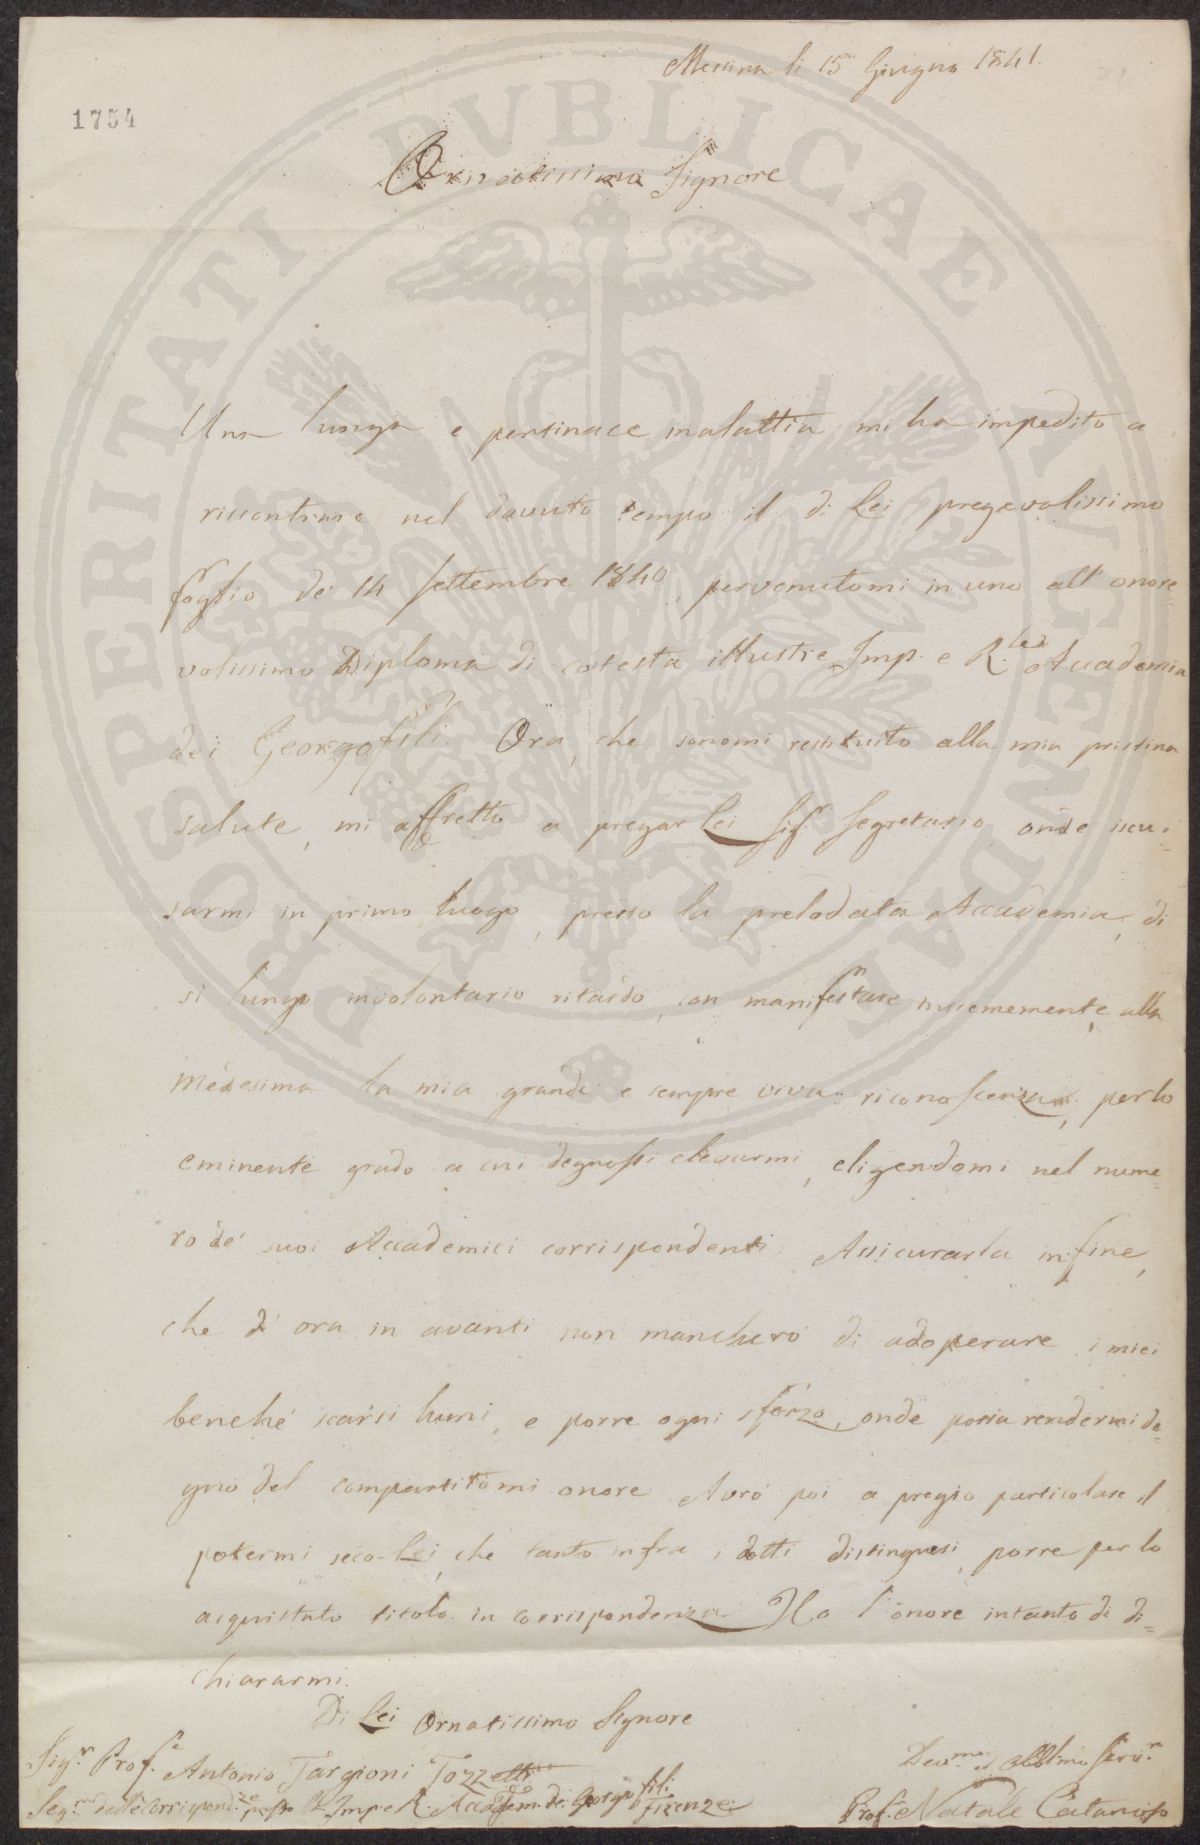 Messina li 15 Giugno 1841.
1754
Ornatissimo Signore
Una lunga e pertinace malattia mi ha impedito a
riscontrare nel dovuto tempo il di Lei pregevolissimo
foglio de' 14 Settembre 1840, pervenutomi in uno all' onore=
volissimo Diploma di cotesta illustre Imp. e R.le Accademia
dei Georgofili. Ora, che sonomi restituito alla mia pristina
salute, mi affretto a pregar Lei Sigr. Segretario, onde scu=
sarmi in primo luogo, presso la prelodata Accademia, di
sì lungo involontario ritardo, con manifestare insiememente alla
medesima la mia grande e sempre viva riconoscenza, per lo
eminente grado a cui degnossi elevarmi, eligendomi nel nume=
ro de' suoi Accademici corrispondenti. Assicurarla in fine,
che d' ora in avanti non mancherò di adoperare i miei
benché scarsi lumi, e porre ogni sforzo, onde possa rendermi de=
gno del compartitomi onore. Avrò poi a pregio particolare il
potermi seco Lei, che tanto infra i dotti distinguesi, porre per lo
acquistato titolo in corrispondenza. Ho l'onore intanto di di=
chiararmi.
Di Lei Ornatissimo Signore
Sigr. Profe. Antonio Targioni Tozzetti
Segrio. delle Corrispondze. presso l' Imp. e R. Accadem. dei Georgofili Firenze
Devmo. ed obblmo Servr.
Profe. Natale Catanoso
PROSPERITATI PVBLICAE AVGENDAE